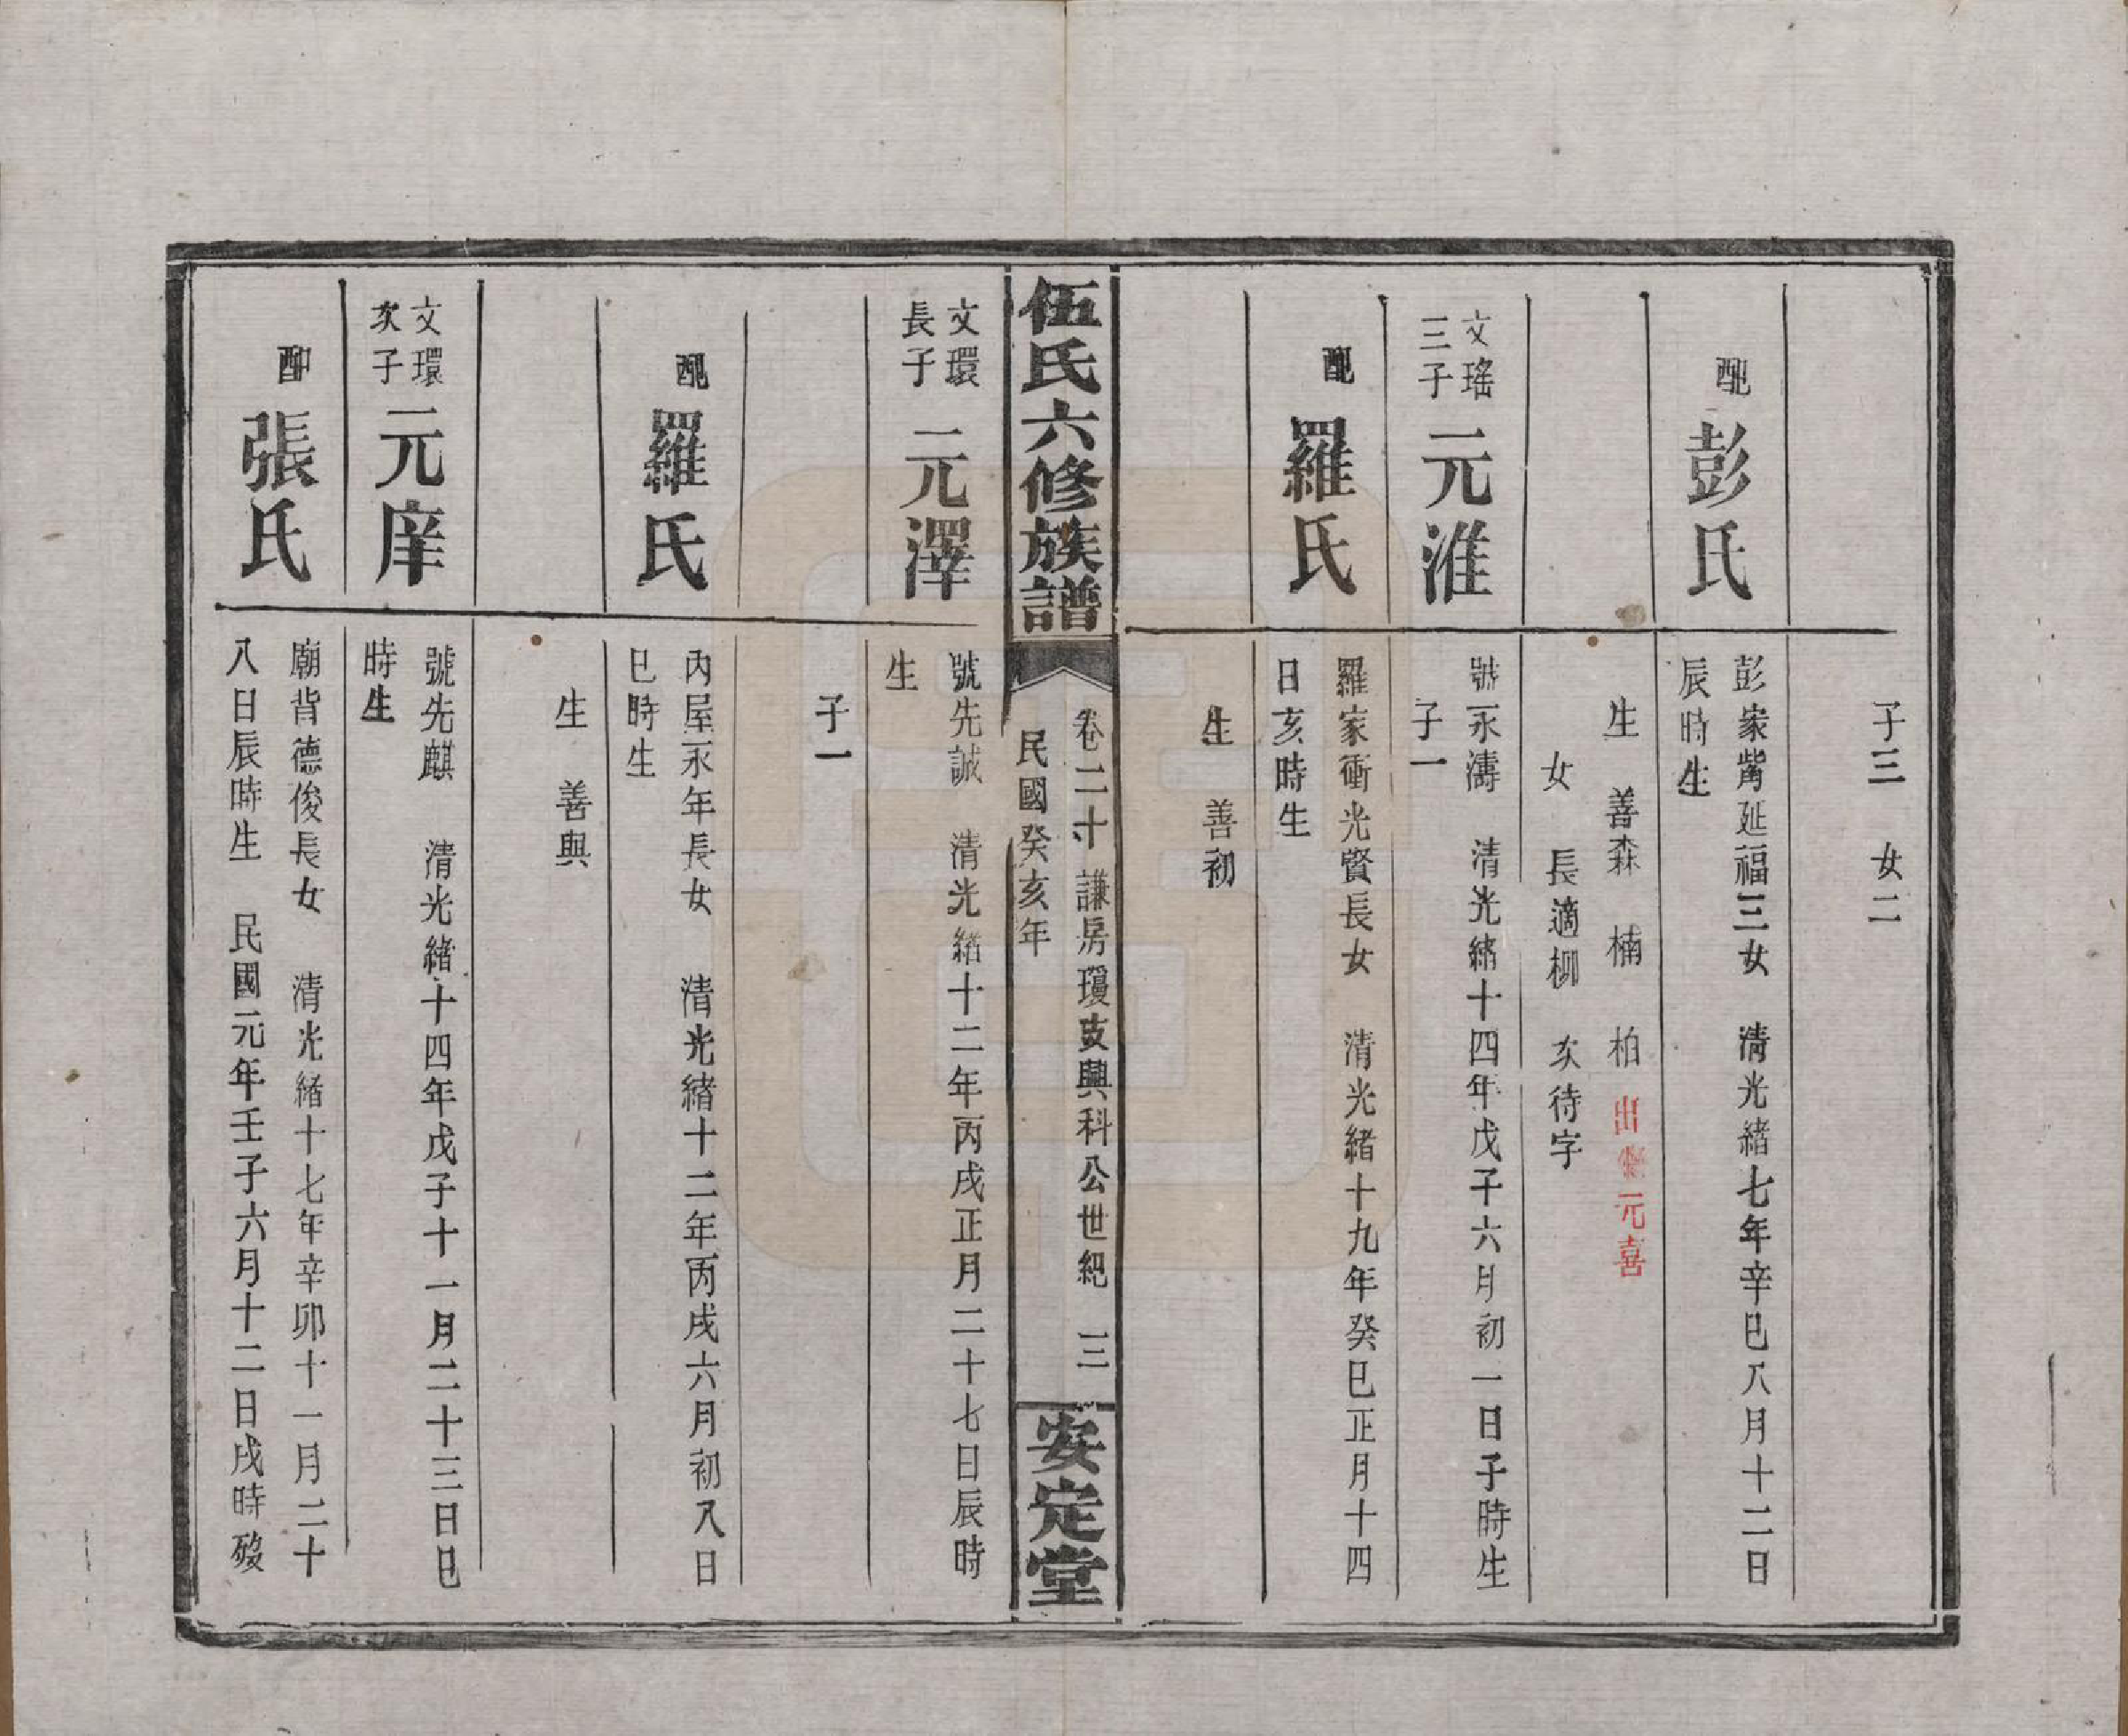 子三 女二
配 彭氏
彭家嘴延福三女 清光緒七年辛巳八月十二日
辰時生
生 善森 楠 柏 出 元喜
女 長適柳 次待字
文瑤
三子
元淮
號永濤 清光緒十四年戊子六月初一日子時生
子一
配 羅氏
羅家衝光賢長女 清光緒十九年癸巳正月十四
日亥時生
生 善初
伍氏六修族譜
卷二十 謙房瓊支興科公世紀 三
民國癸亥年
安定堂
文環
長子
元澤
號先誠 清光緒十二年丙戌正月二十七日辰時
生
子一
配 羅氏
內屋永年長女 清光緒十二年丙戌六月初八日
巳時生
生 善興
文環
次子
元庠
號先麒 清光緒十四年戊子十一月二十三日巳
時生
配 張氏
廟背德俊長女 清光緒十七年辛卯十一月二十
八日辰時生 民國元年壬子六月十二日戌時歿